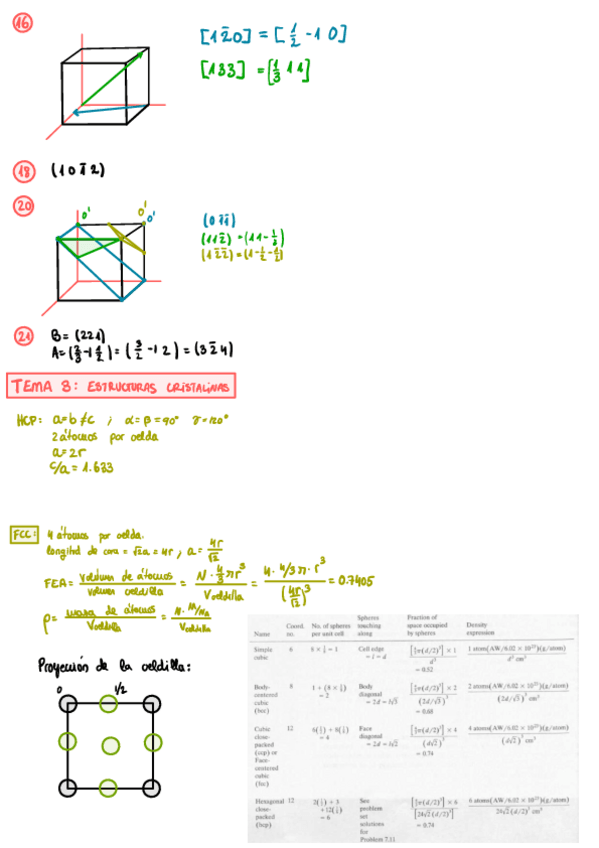 16
[1 2̄ 0] = [1/2 -1 0]
[133] = [1/3 1 1]
18 (1 0 1̄ 2)
20
0' 0' 0'
(0 1̄ 1̄)
(1 1 2̄) = (1 1 -1/2)
(1 2̄ 2̄) = (1 -1/2 -1/2)
21 B = (221)
A = (2/3 -1 1/2) = (3/2 -1 2) = (3 2̄ 4)
TEMA 3: ESTRUCTURAS CRISTALINAS
HCP: a=b≠c ; α=β=90° γ=120°
2 átomos por celda
a=2r
c/a = 1.633
FCC: 4 átomos por celda.
longitud de cara = √2a = 4r ; a = 4r/√2
FEA = volumen de átomos / volumen celdilla = N · 4/3 π r³ / Vceldilla = 4 · 4/3 π · r³ / (4r/√2)³ = 0.7405
ρ = masa de átomos / Vceldilla = N · M/NA / Vceldilla
Proyección de la celdilla:
0 1/2
Name Coord. no. No. of spheres per unit cell Spheres touching along Fraction of space occupied by spheres Density expression
Simple cubic 6 8 × 1/8 = 1 Cell edge = l = d [4/3 π(d/2)³] × 1 / d³ = 0.52 1 atoms(AW/6.02 × 10²³)(g/atom) / d³ cm³
Body-centered cubic (bcc) 8 1 + (8 × 1/8) = 2 Body diagonal = 2d = l√3 [4/3 π(d/2)³] × 2 / (2d/√3)³ = 0.68 2 atoms(AW/6.02 × 10²³)(g/atom) / (2d/√3)³ cm³
Cubic close-packed (ccp) or Face-centered cubic (fcc) 12 6(1/2) + 8(1/8) = 4 Face diagonal = 2d = l√2 [4/3 π(d/2)³] × 4 / (d√2)³ = 0.74 4 atoms(AW/6.02 × 10²³)(g/atom) / (d√2)³ cm³
Hexagonal close-packed (hcp) 12 2(1/2) + 3 + 12(1/6) = 6 See problem set solutions for Problem 7.11 [4/3 π(d/2)³] × 6 / [24√2 (d/2)³] = 0.74 6 atoms(AW/6.02 × 10²³)(g/atom) / 24√2 (d/2)³ cm³